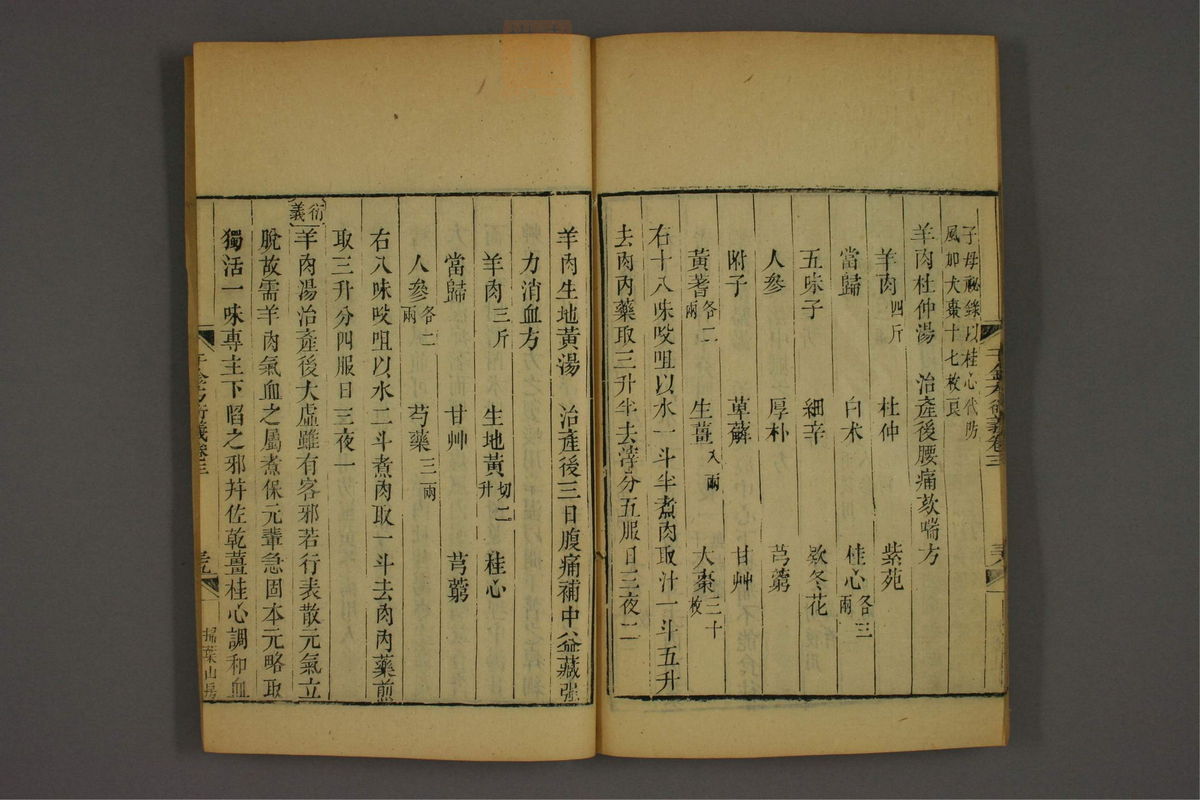 子母秘錄以桂心代防
風加大棗十七枚良
羊肉杜仲湯 治產後腰痛欬喘方
羊肉四斤 杜仲 紫菀
當歸 白朮 桂心各三兩
五味子 細辛 欵冬花
人參 厚朴 芎藭
附子 萆薢 甘艸
黃蓍各二兩 生薑八兩 大棗三十枚
右十八味㕮咀以水一斗半煮肉取汁一斗五升
去肉內藥取三升半去滓分五服日三夜二
千金方衍義卷三
羊肉生地黃湯 治產後三日腹痛補中益藏强
力消血方
羊肉三斤 生地黃切二升 桂心
當歸 甘艸 芎藭
人參各二兩 芍藥三兩
右八味㕮咀以水二斗煮肉取一斗去肉內藥煎
取三升分四服日三夜一
衍義
羊肉湯治產後大虛雖有客邪若行表散元氣立
脫故需羊肉氣血之屬煮保元輩急固本元略取
獨活一味專主下陷之邪并佐乾薑桂心調和血
千金方衍義卷三
掃葉山房